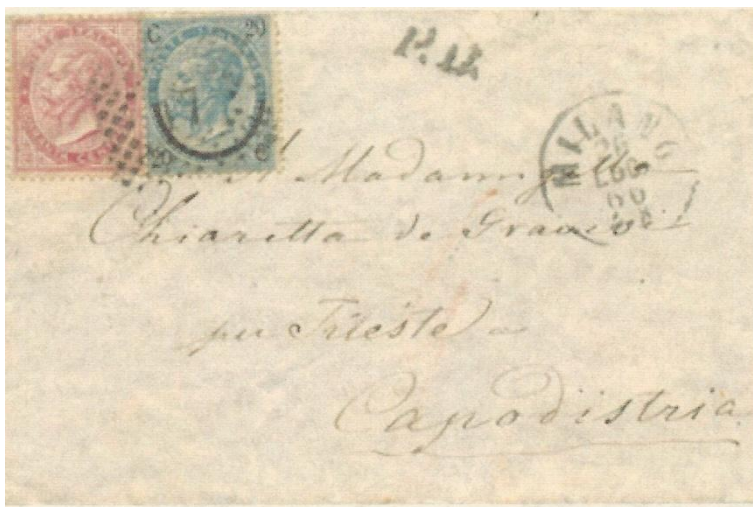 C 20
20 C
P.D.
MILANO
LUG
66
A Madamigella
Chiaretta de Gravisi
per Trieste
Capodistria